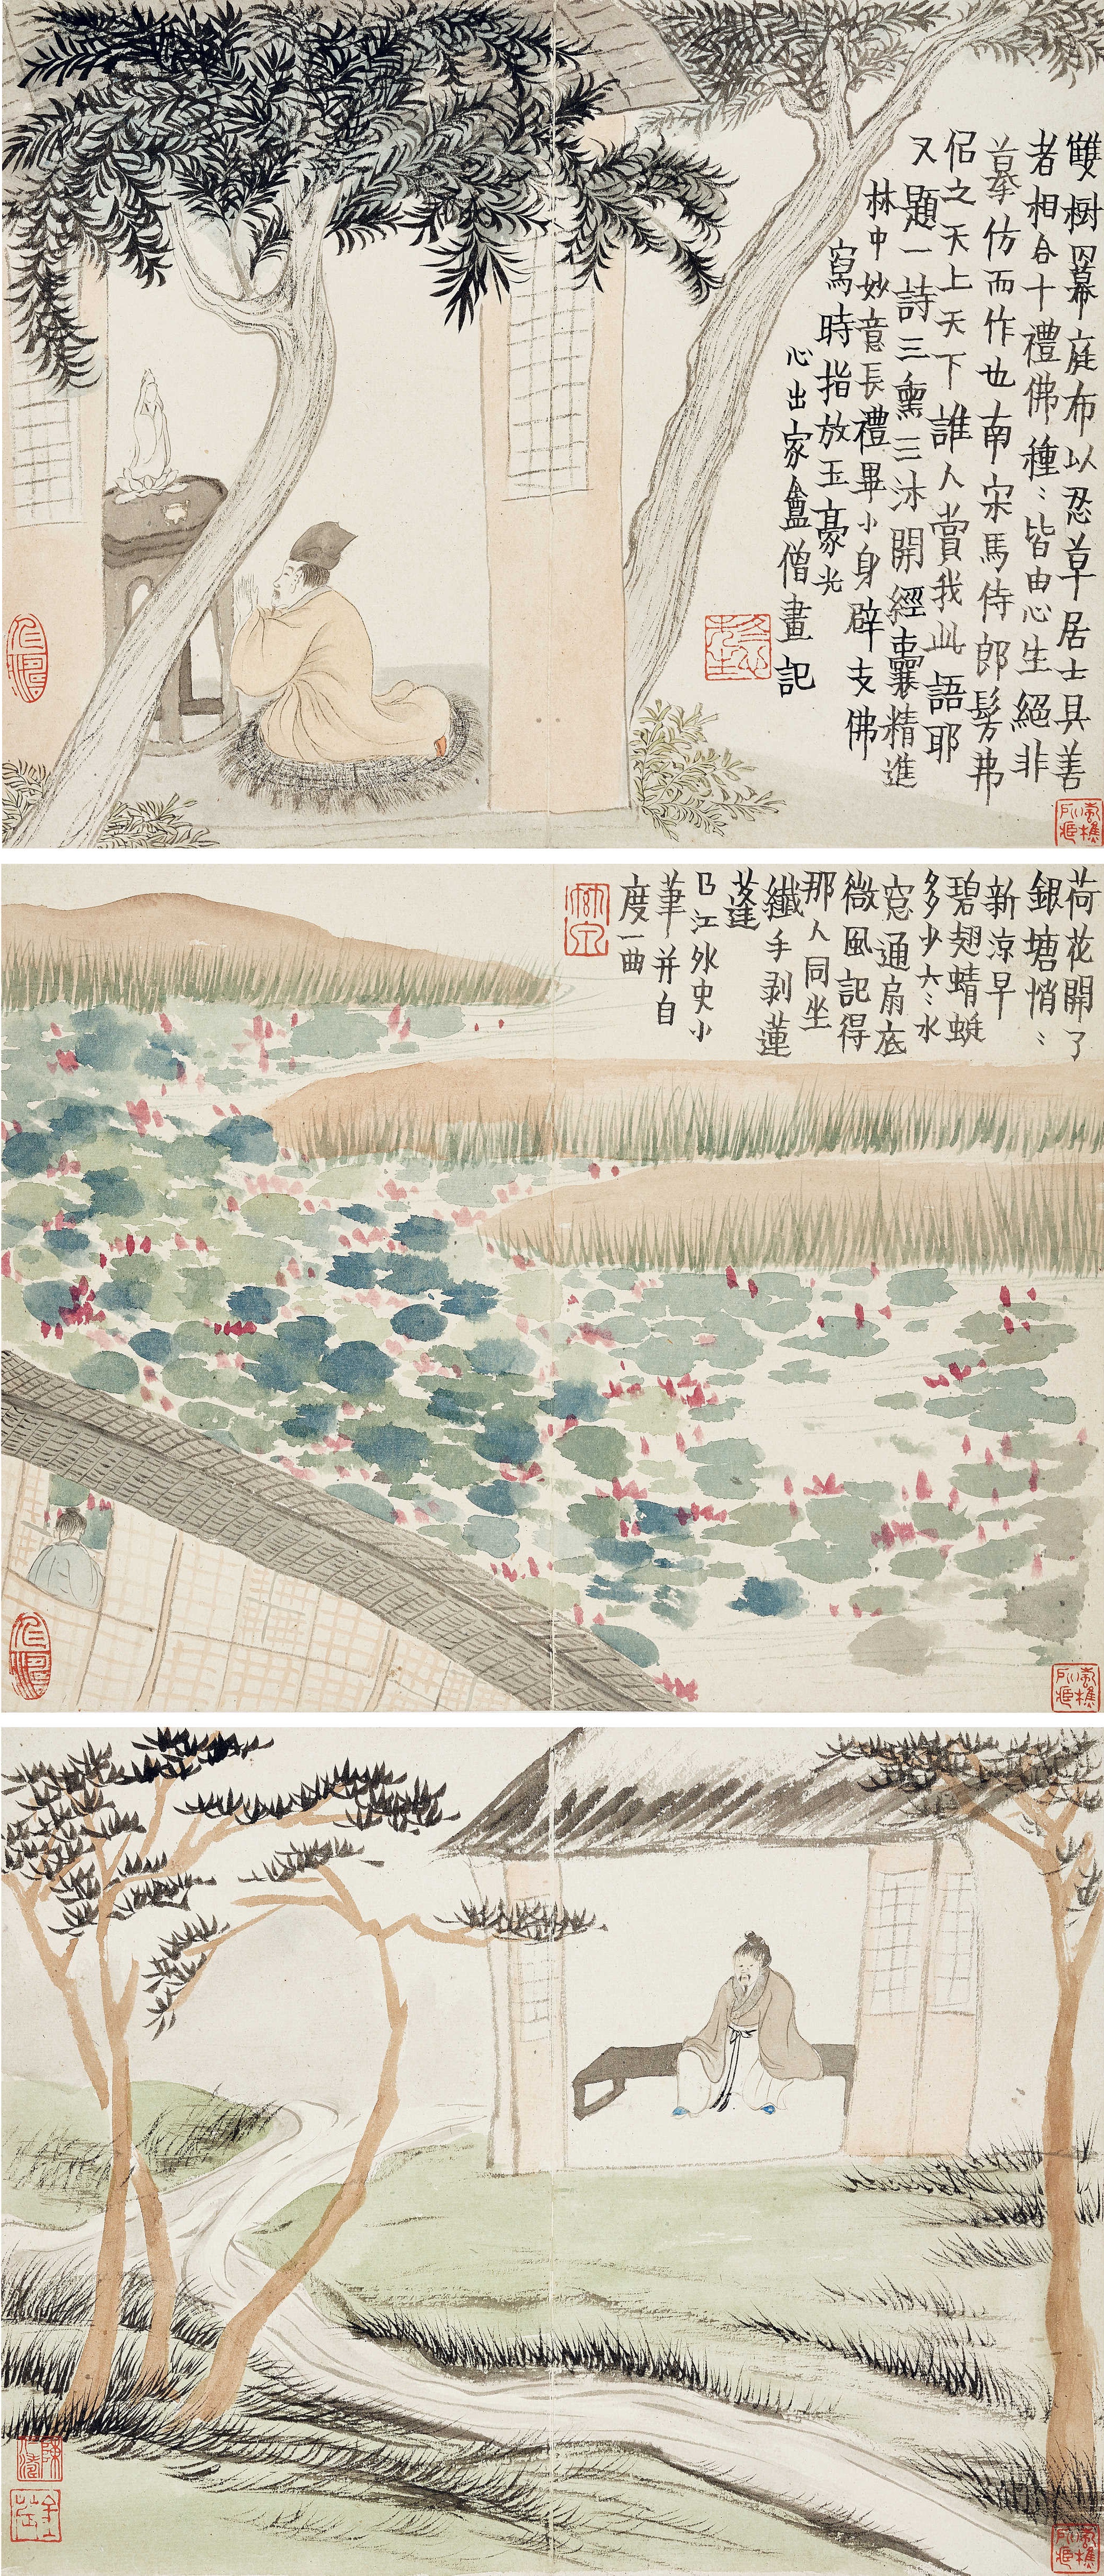 雙樹囧幕庭布以忍草居士具善
者相合十禮佛種〻皆由心生絕非
摹仿而作也南宋馬侍郎髣弗
侶之天上天下誰人賞我此語耶
又題一詩三熏三沐開經囊精進
林中妙意長禮畢小身辟支佛
寫時指放玉豪光
心出家盦僧畫記
荷花開了
銀塘悄〻
新涼早
碧翅蜻蜓
多少六〻水
窓通扇底
微風記得
那人同坐
纖手剥蓮
蓬
㠯江外史小
筆并自
度一曲